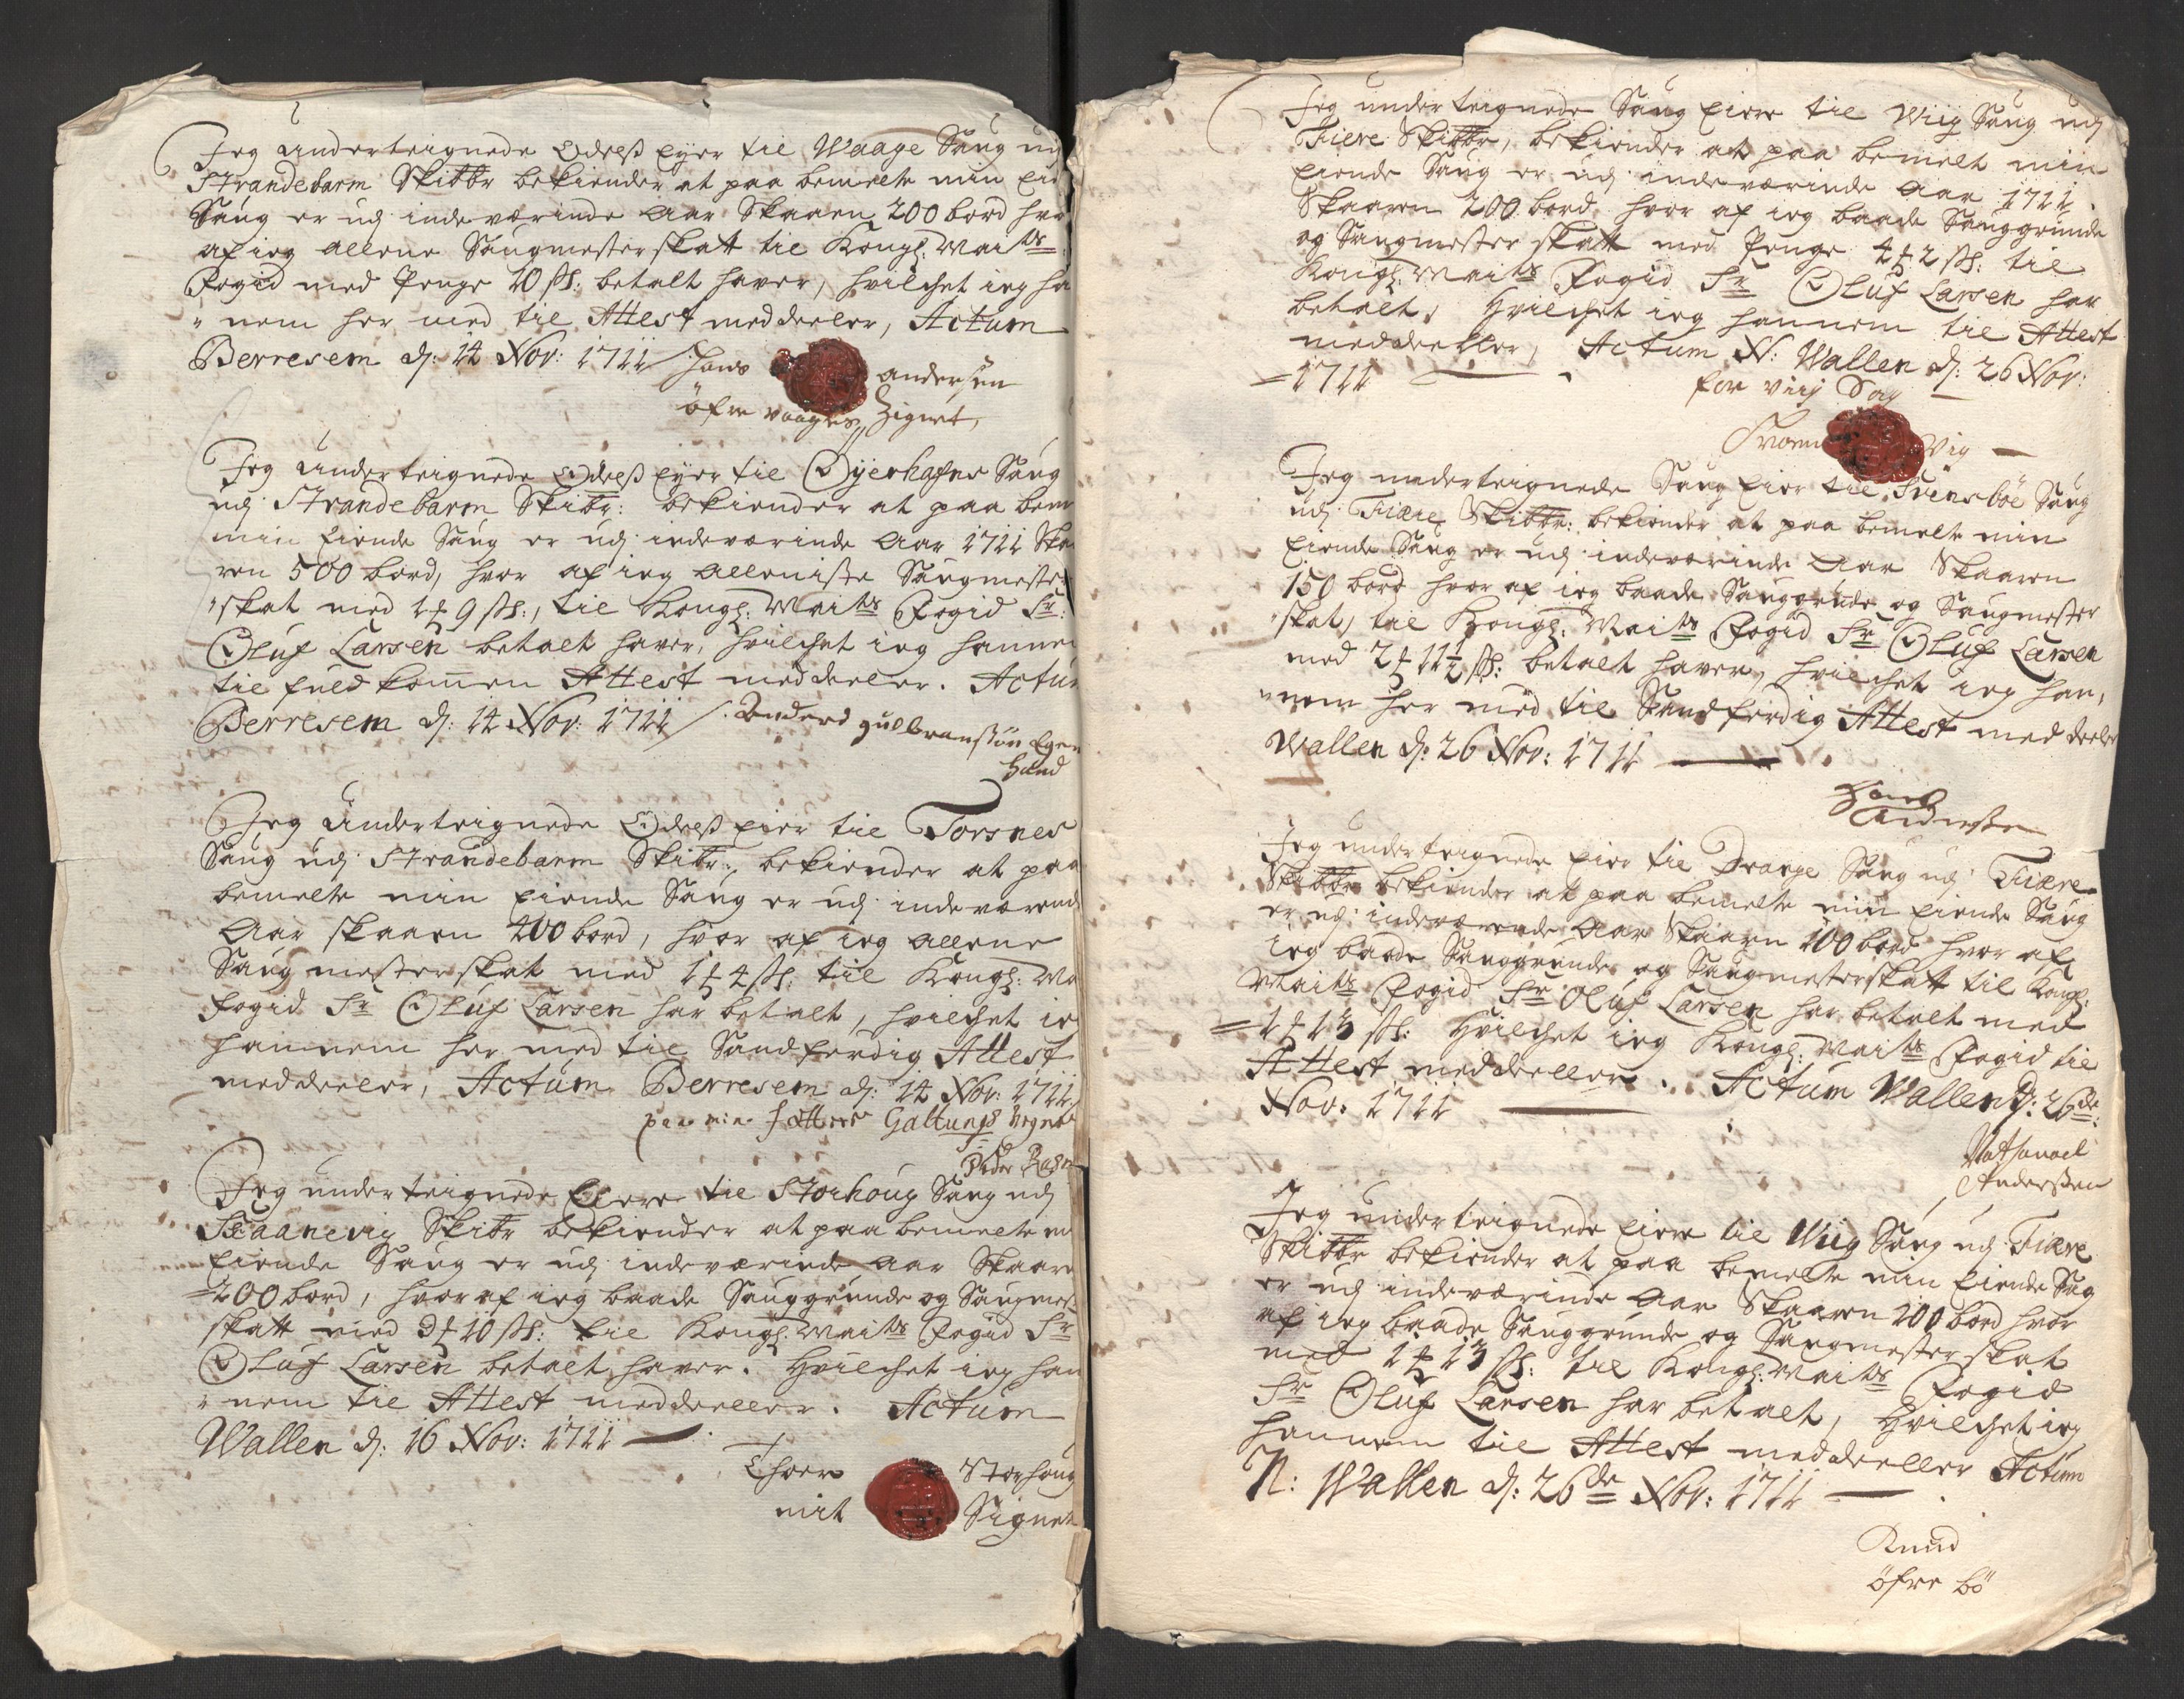 Jeg Underteignede Odelss Eyer til Waage Saug udj
Strandebarm Skibbr bekiender at paa bemelte min Ei
Saug er udj indeværinde Aar Skaaren 200 bord hvor
af ieg allene Saugmesterskatt til Kongl: Maits
Fogid med Penge 10 sk: betalt haver, hvilchet ieg ha
nem her med til Attest meddeeler, Actum
Berresem dj: 14 Nov: 1711 Hans Andersen
öfre Vaages Zignet,
Jeg Underteignede Odelss Eyer til Oyerhafns Saug
udj Strandebarm Skibr: bekiender at paa bem
min Eiende Saug er udj indeværinde Aar 1711 Ska
ren 500 bord, hvor af ieg alleniste Saugmester
skat med 1 ₰ 9 sk:, til Kongl: Maits Fogid Sr:
Oluf Larsen betalt haver, hvilchet ieg hannem
til fuldkommen Attest meddeeler. Actum
Berresem dj: 14 Nov: 1711 /. Anders gulbransøn Egen
hand
Jeg Underteignede Odelss Eier til Torsnes
Saug udj Strandebarm Skibr:, bekiender at paa
bemelte min Eiende Saug er udj indeværende
Aar skaaren 400 bord, hvor af ieg allene
Saug mesterskat med 1 ₰ 4 sk: til Kongl: Ma
fogid Sr Oluf Larsen har betalt, hvilchet ie
hannem her med til Sandferdig Attest
meddeeler, Actum Berresem dj: 14 Nov: 1711.
paa min fætters Galtungs Vegne
Peder
Jeg underteignede Eiere til Storhoug Saug udj
Skaanevig Skibr bekiender at paa bemelte m
Eiende Saug er udj indeværinde Aar Skaare
200 bord, hvor af ieg baade Sauggrunde og Saugmes
skatt med 3 ₰ 10 sk: til Kongl: Maits Fogid Sr
Oluf Larsen betalt haver. Hvilchet ieg han
nem til Attest meddeeller. Actum
Wallen dj: 16 Nov: 1711
Thoer Storhoug
mit Signet
Jeg underteignede Saug Eiere til Wiig Saug udj
Fiere Skibbr, bekiender at paa bemelt min
Eiende Saug er udj indeværinde Aar 1711.
Skaaren 200 bord hvor af ieg baade Sauggrunde
og Saugmester skatt med Penge 4 ₰ 2 sk: til
Kongl: Maits Fogid Sr Oluf Larsen har
betalt, Hvilchet ieg hannem til Attest
meddeeller, Actum N: Wallen dj: 26 Nov:
1711
for viig Sag
Vig
Jeg underteignede Saug Eier til Svensböe Saug
udj Fiære Skibbr: bekiender at paa bemelte min
Eiende Saug er udj indeværinde Aar Skaaren
150 bord hvor af ieg baade Sauggrunde og Saugmester
skat, til Kongl: Maits Fogid Sr Oluf Larsen
med 2 ₰ 11½ sk: betalt haver, hvilchet ieg han,
nem her med til Sandferdig Attest meddeeler
Wallen dj: 26 Nov: 1711
Jeg underteignede Eier til Drange Saug udj Fiære
Skibbr bekiender at paa bemelte min Eiende Saug
er udj indeværende Aar Skaaren 100 bord hvor af
ieg baade Sauggrunde og Saugmesterskatt til Kongl:
Maits Fogid Sr Oluf Larsen har betalt med
1 ₰ 13 sk: Hvilchet ieg Kongl: Maits Fogid til
Attest meddeeller. Actum Wallen dj: 26de
Nov: 1711
Nathanael
Anderssen
Jeg underteignede Eiere til Wiig Saug udj Fiære
Skibbr bekiender at paa bemelte min Eiende Sag
er udj indeværinde Aar Skaaren 100 bord hvor
af ieg baade Sauggrunde og Saugmester skat
med 1 ₰ 13 sk: til Kongl: Maits Fogid
Sr Oluf Larsen har betalt, Hvilchet ieg
hannem til Attest meddeeller Actum
N: Wallen dj: 26de Nov: 1711
Knud
öfre bö